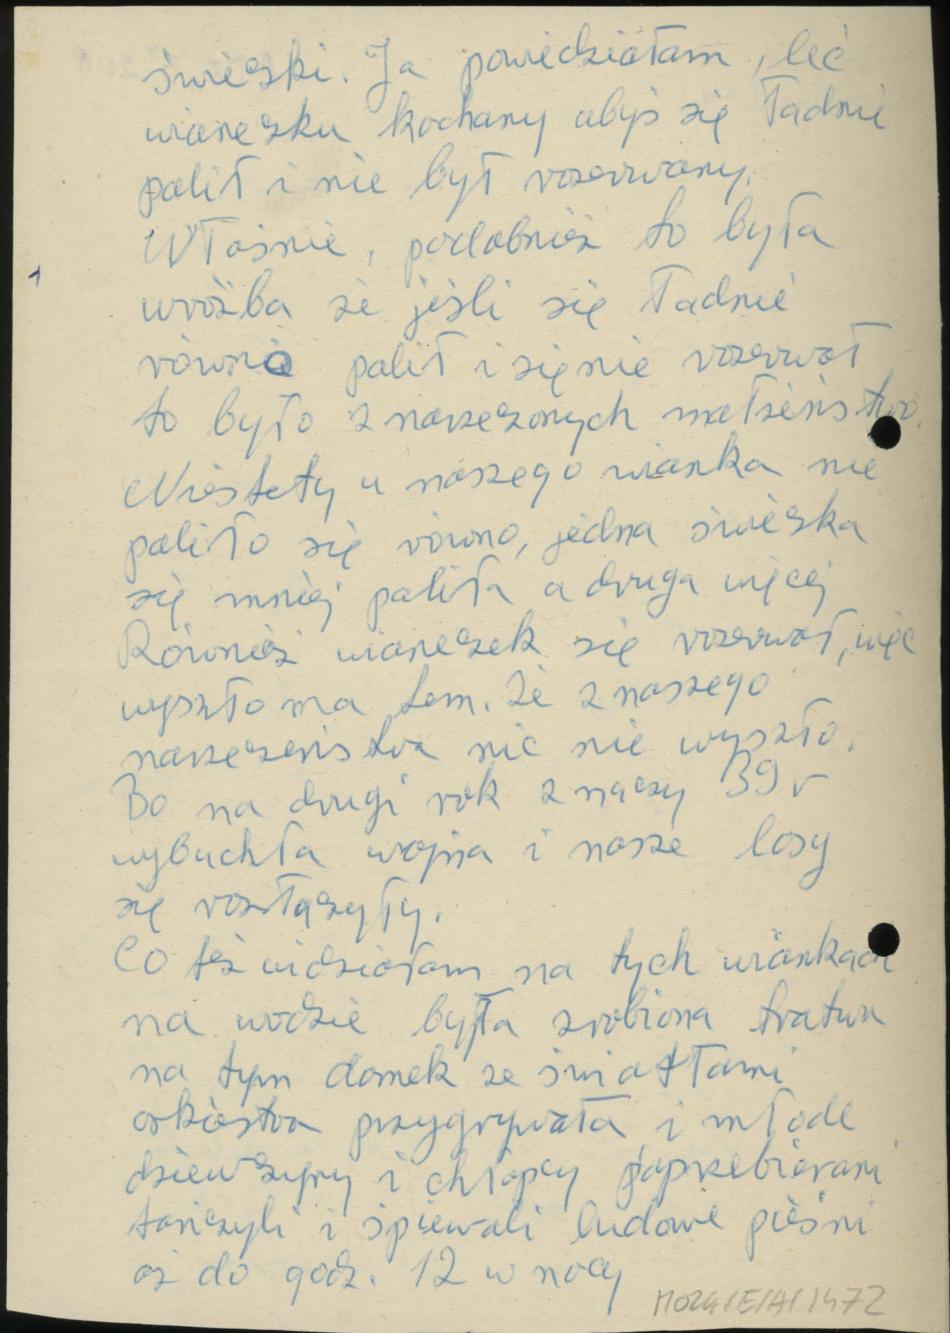 świeczki. Ja powiedziałam, leć
wianeczku kochany abyś się ładnie
palił i nie był rozerwany.
Właśnie, podobnież to była
wróżba że jeśli się ładnie
równo palił i się nie rozerwał
to było z narzeczonych małżeństwo.
Niestety u naszego wianka nie
paliło się równo, jedna świeczka
się mniej paliła a druga więcej
Również wianeczek się rozerwał, więc
wyszło na tem. że z naszego
narzeczeństwa nic nie wyszło.
Bo na drugi rok znaczy 39 r
wybuchła wojna i nasze losy
się rozłączyły.
Co też widziałam na tych wiankach
na wodzie była zrobiona tratwa
na tym domek ze światłami
orkiestra przygrywała i młode
dziewczyny i chłopcy poprzebierani
tańczyli i śpiewali ludowe pieśni
aż do godz. 12 w nocy